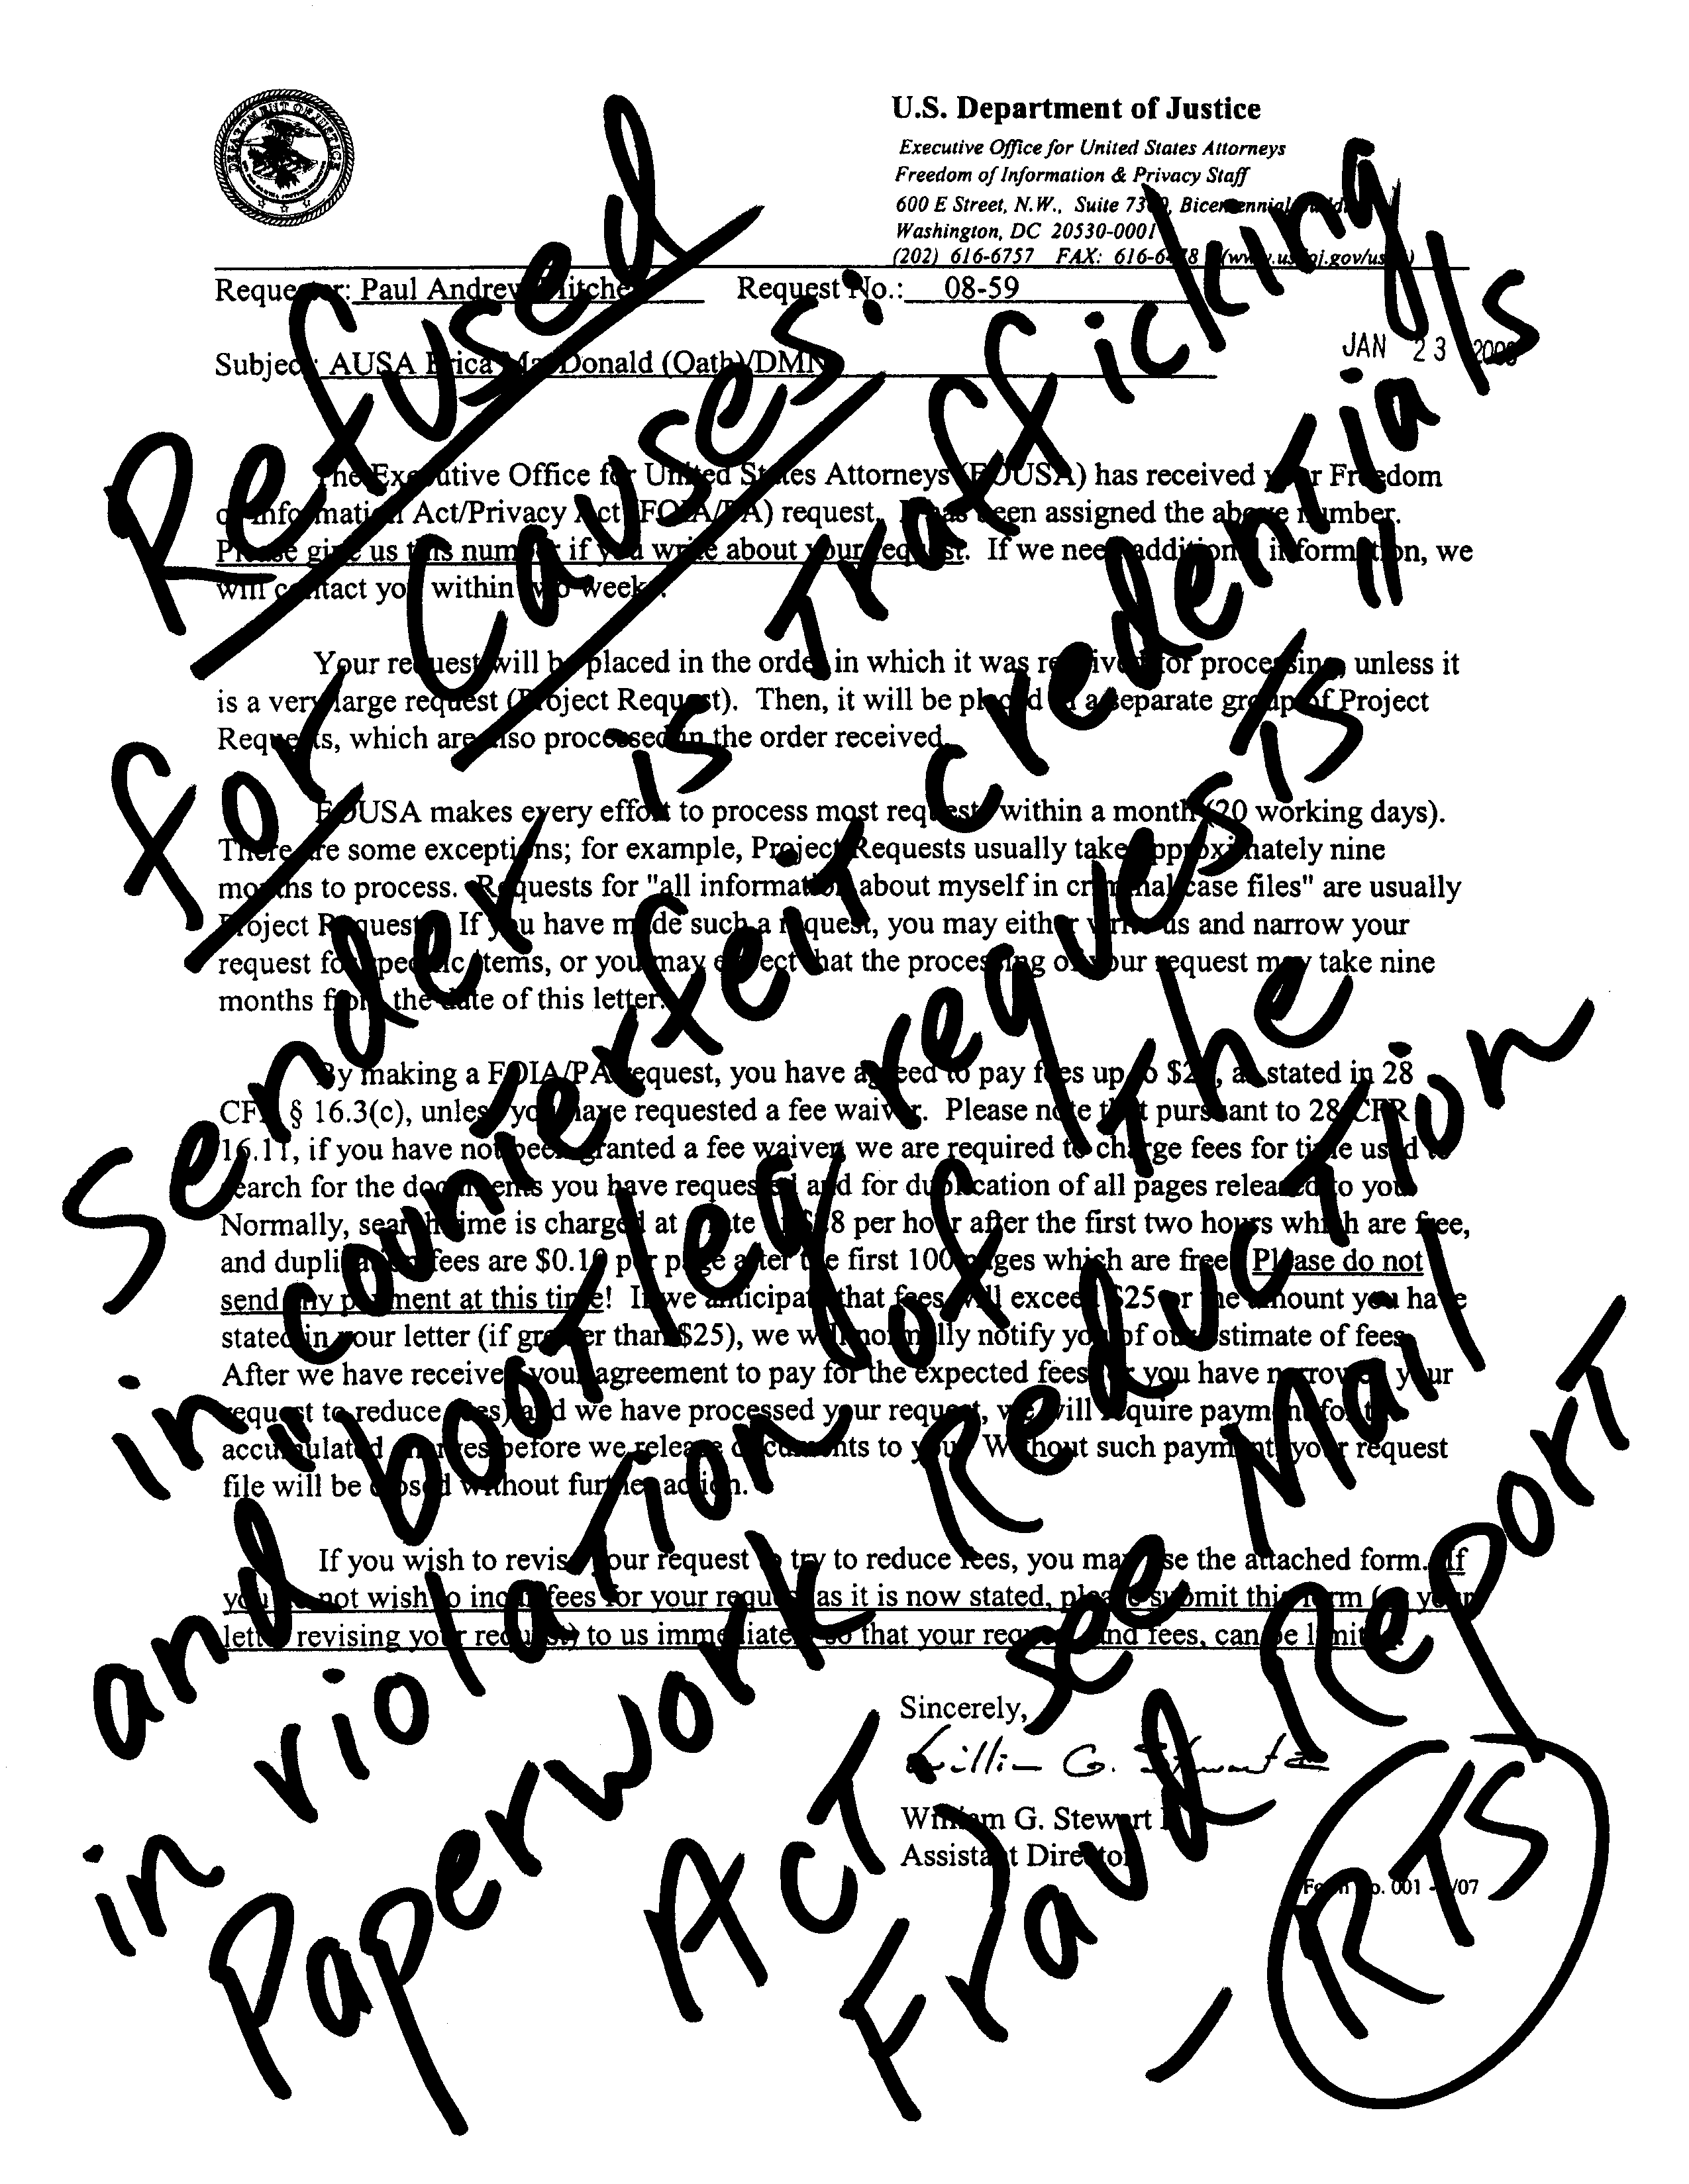 U.S. Department of Justice
Executive Office for United States Attorneys
Freedom of Information & Privacy Staff
600 E Street, N.W., Suite Bicentennial
Washington, DC 20530-0001
(202) 616-6757 FAX:
Requester: Paul Andrew Mitchell Request No.: 08-59
JAN 23
Subject: AUSA Erica MacDonald (Oath)/DMN
The Executive Office for United States Attorneys (EOUSA) has received your Freedom
of Information Act/Privacy Act (FOIA/PA) request. It has been assigned the above number.
Please give us this number if you write about your request. If we need additional information, we
will contact you within two weeks.
Your request will be placed in the order in which it was received for processing, unless it
is a very large request (Project Request). Then, it will be placed in a separate group of Project
Requests, which are also processed in the order received.
EOUSA makes every effort to process most requests within a month (20 working days).
There are some exceptions; for example, Project Requests usually take approximately nine
months to process. Requests for "all information about myself in criminal case files" are usually
Project Requests. If you have made such a request, you may either write us and narrow your
request for specific items, or you may expect that the processing of your request may take nine
months from the date of this letter.
By making a FOIA/PA request, you have agreed to pay fees up to as stated in 28
CFR § 16.3(c), unless you have requested a fee waiver. Please note that pursuant to 28 CFR
16.11, if you have not been granted a fee waiver, we are required to charge fees for time used to
search for the documents you have requested and for duplication of all pages released to you.
Normally, search time is charged at a rate of per hour after the first two hours which are free,
and duplication fees are $0.10 per page after the first 100 pages which are free. Please do not
send any payment at this time! If we anticipate that fees will exceed $25 or the amount you have
stated in your letter (if greater than $25), we will normally notify you of our estimate of fees.
After we have received your agreement to pay for the expected fees (or you have narrowed your
request to reduce fees) and we have processed your request, we will require payment for the
accumulated charges before we release documents to you. Without such payment, your request
file will be closed without further action.
If you wish to revise your request to try to reduce fees, you may use the attached form. If
you do not wish to incur fees for your request as it is now stated, please submit this form (or your
letter revising your request) to us immediately so that your request, and fees, can be limited.
Sincerely,
William G. Stewart
William G. Stewart
Assistant Director
Form No. 001 - /07
Refused
for Causes:
Sender is Trafficking
in counterfeit credentials
and "bootleg requests"
in violation of The
Paperwork Reduction
Act see Mail
Fraud Report
- RTS